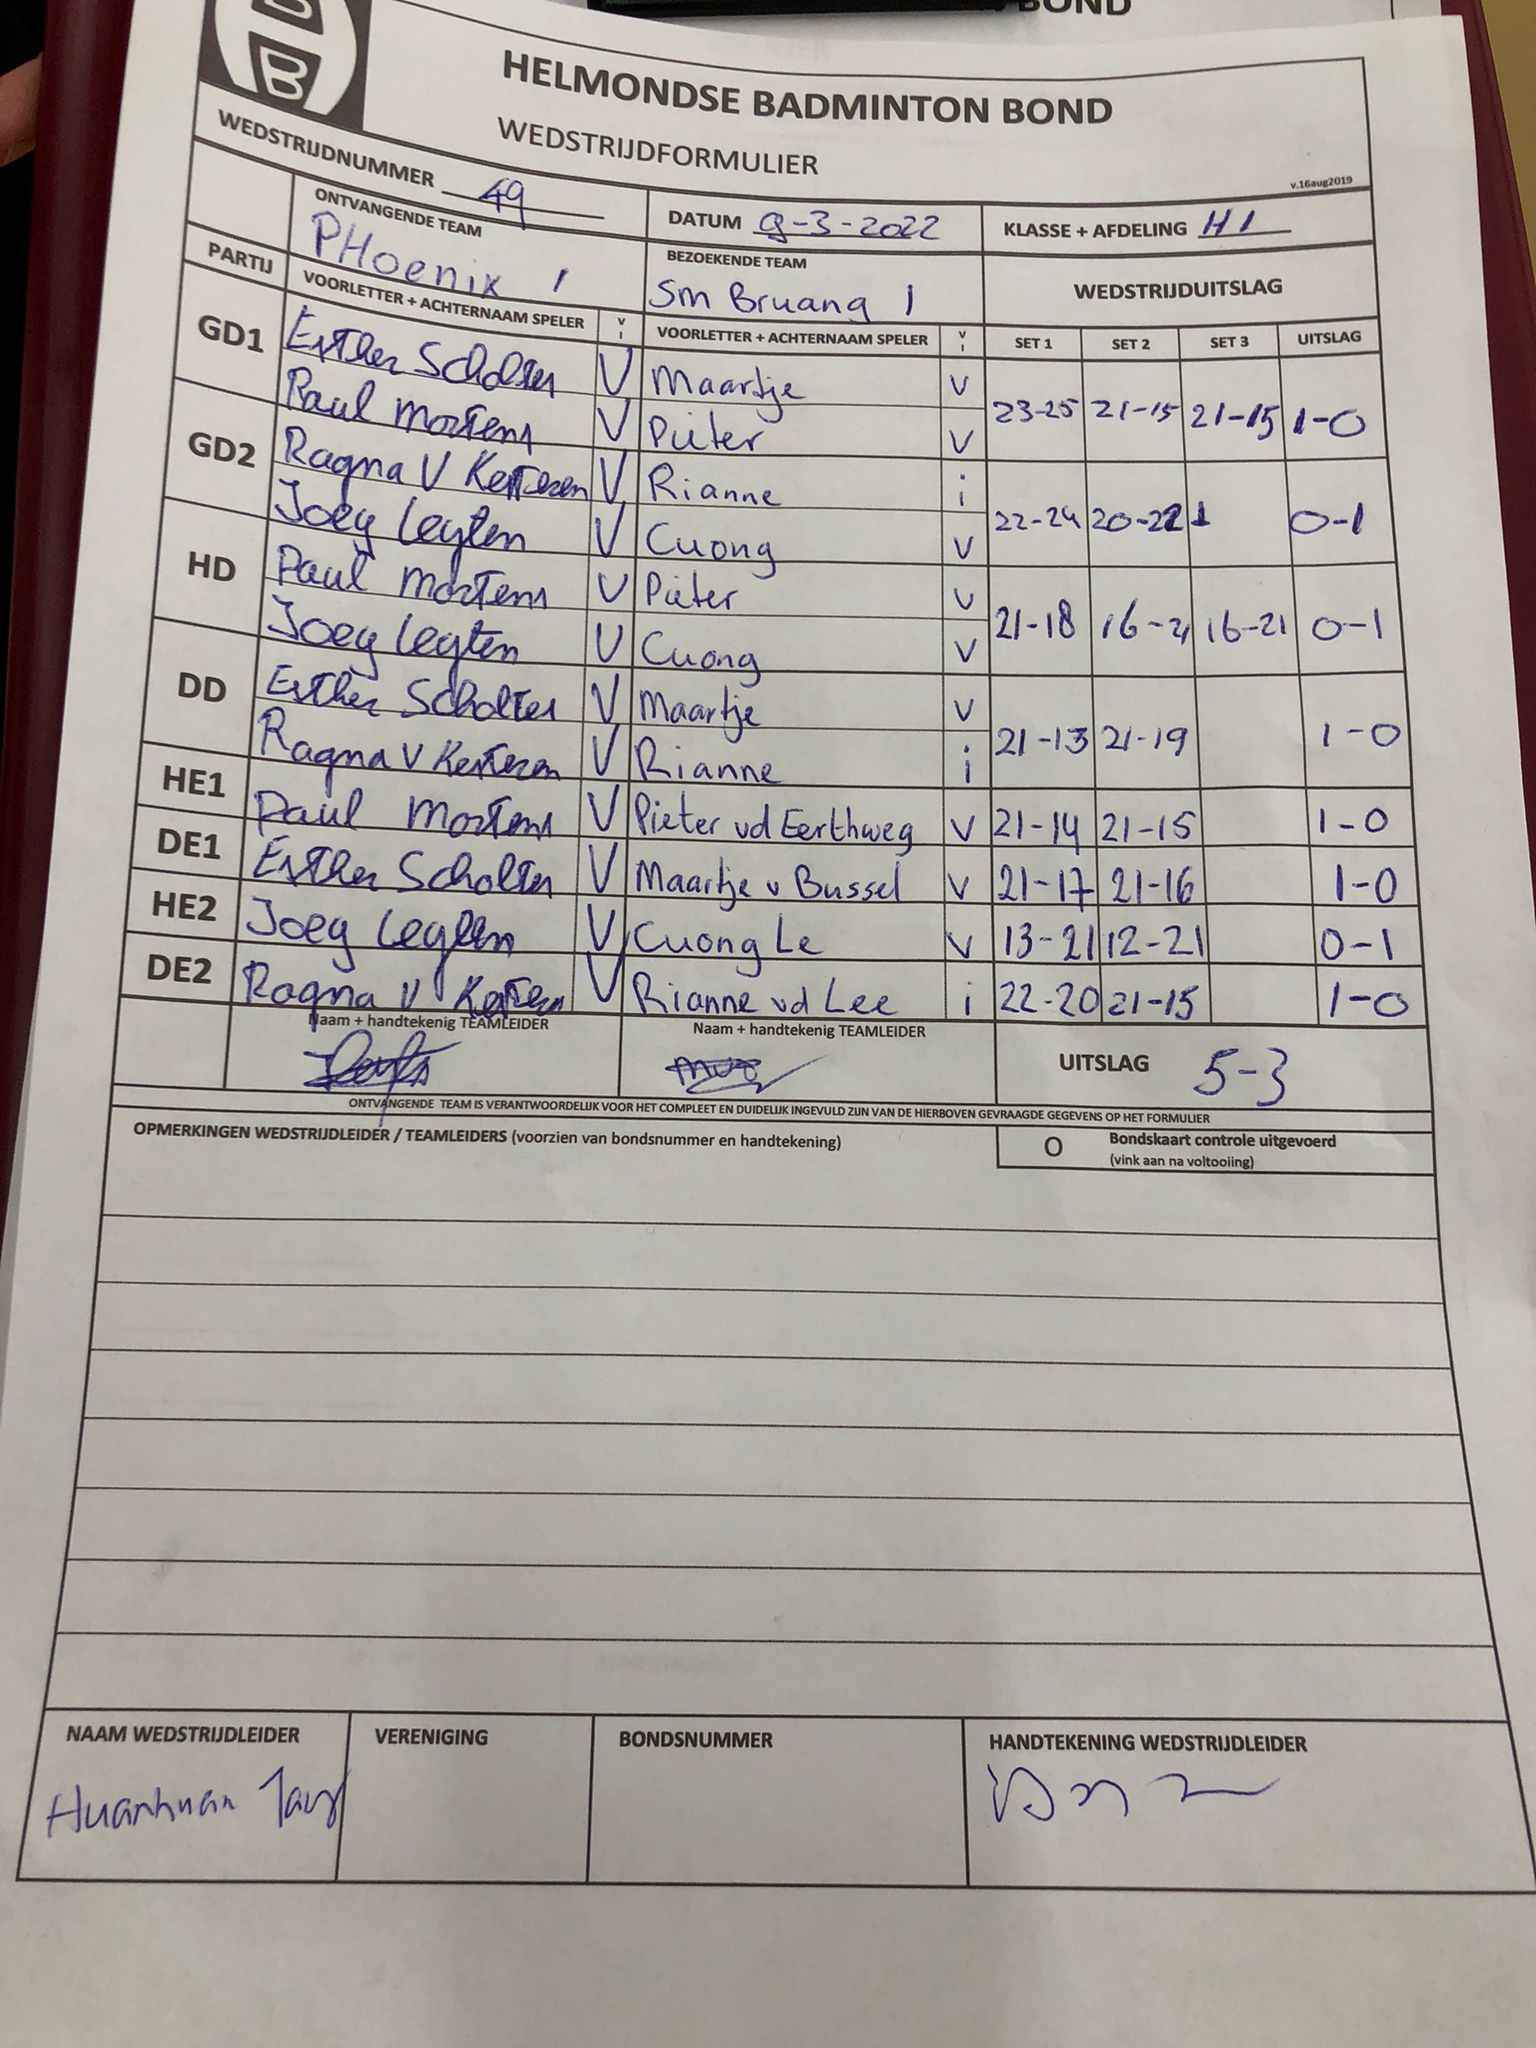 BOND
B
B
HELMONDSE BADMINTON BOND
WEDSTRIJDFORMULIER
v.16aug2019
WEDSTRIJDNUMMER 49
DATUM 9-3-2022
KLASSE + AFDELING H1
ONTVANGENDE TEAM
PHoenix 1
BEZOEKENDE TEAM
Sm Bruang 1
WEDSTRIJDUITSLAG
PARTIJ VOORLETTER + ACHTERNAAM SPELER V I VOORLETTER + ACHTERNAAM SPELER V I SET 1 SET 2 SET 3 UITSLAG
GD1 Esther Scholten V Maartje V 23-25 21-15 21-15 1-0
Paul Mortens V Pieter V
GD2 Ragna V Kesteren V Rianne i 22-24 20-22 0-1
Joey Leyten V Cuong V
HD Paul Mortens V Pieter V 21-18 16-21 16-21 0-1
Joey Leyten V Cuong V
DD Esther Scholten V Maartje V 21-13 21-19 1-0
Ragna V Kesteren V Rianne i
HE1 Paul Mortens V Pieter vd Eerthweg V 21-14 21-15 1-0
DE1 Esther Scholten V Maartje v Bussel V 21-17 21-16 1-0
HE2 Joey Leyten V Cuong Le V 13-21 12-21 0-1
DE2 Ragna V Kesteren V Rianne vd Lee i 22-20 21-15 1-0
Naam + handtekenig TEAMLEIDER
Naam + handtekenig TEAMLEIDER
UITSLAG 5-3
ONTVANGENDE TEAM IS VERANTWOORDELIJK VOOR HET COMPLEET EN DUIDELIJK INGEVULD ZIJN VAN DE HIERBOVEN GEVRAAGDE GEGEVENS OP HET FORMULIER
OPMERKINGEN WEDSTRIJDLEIDER / TEAMLEIDERS (voorzien van bondsnummer en handtekening)
O Bondskaart controle uitgevoerd
(vink aan na voltooiing)
NAAM WEDSTRIJDLEIDER
Huanhuan
VERENIGING
BONDSNUMMER
HANDTEKENING WEDSTRIJDLEIDER